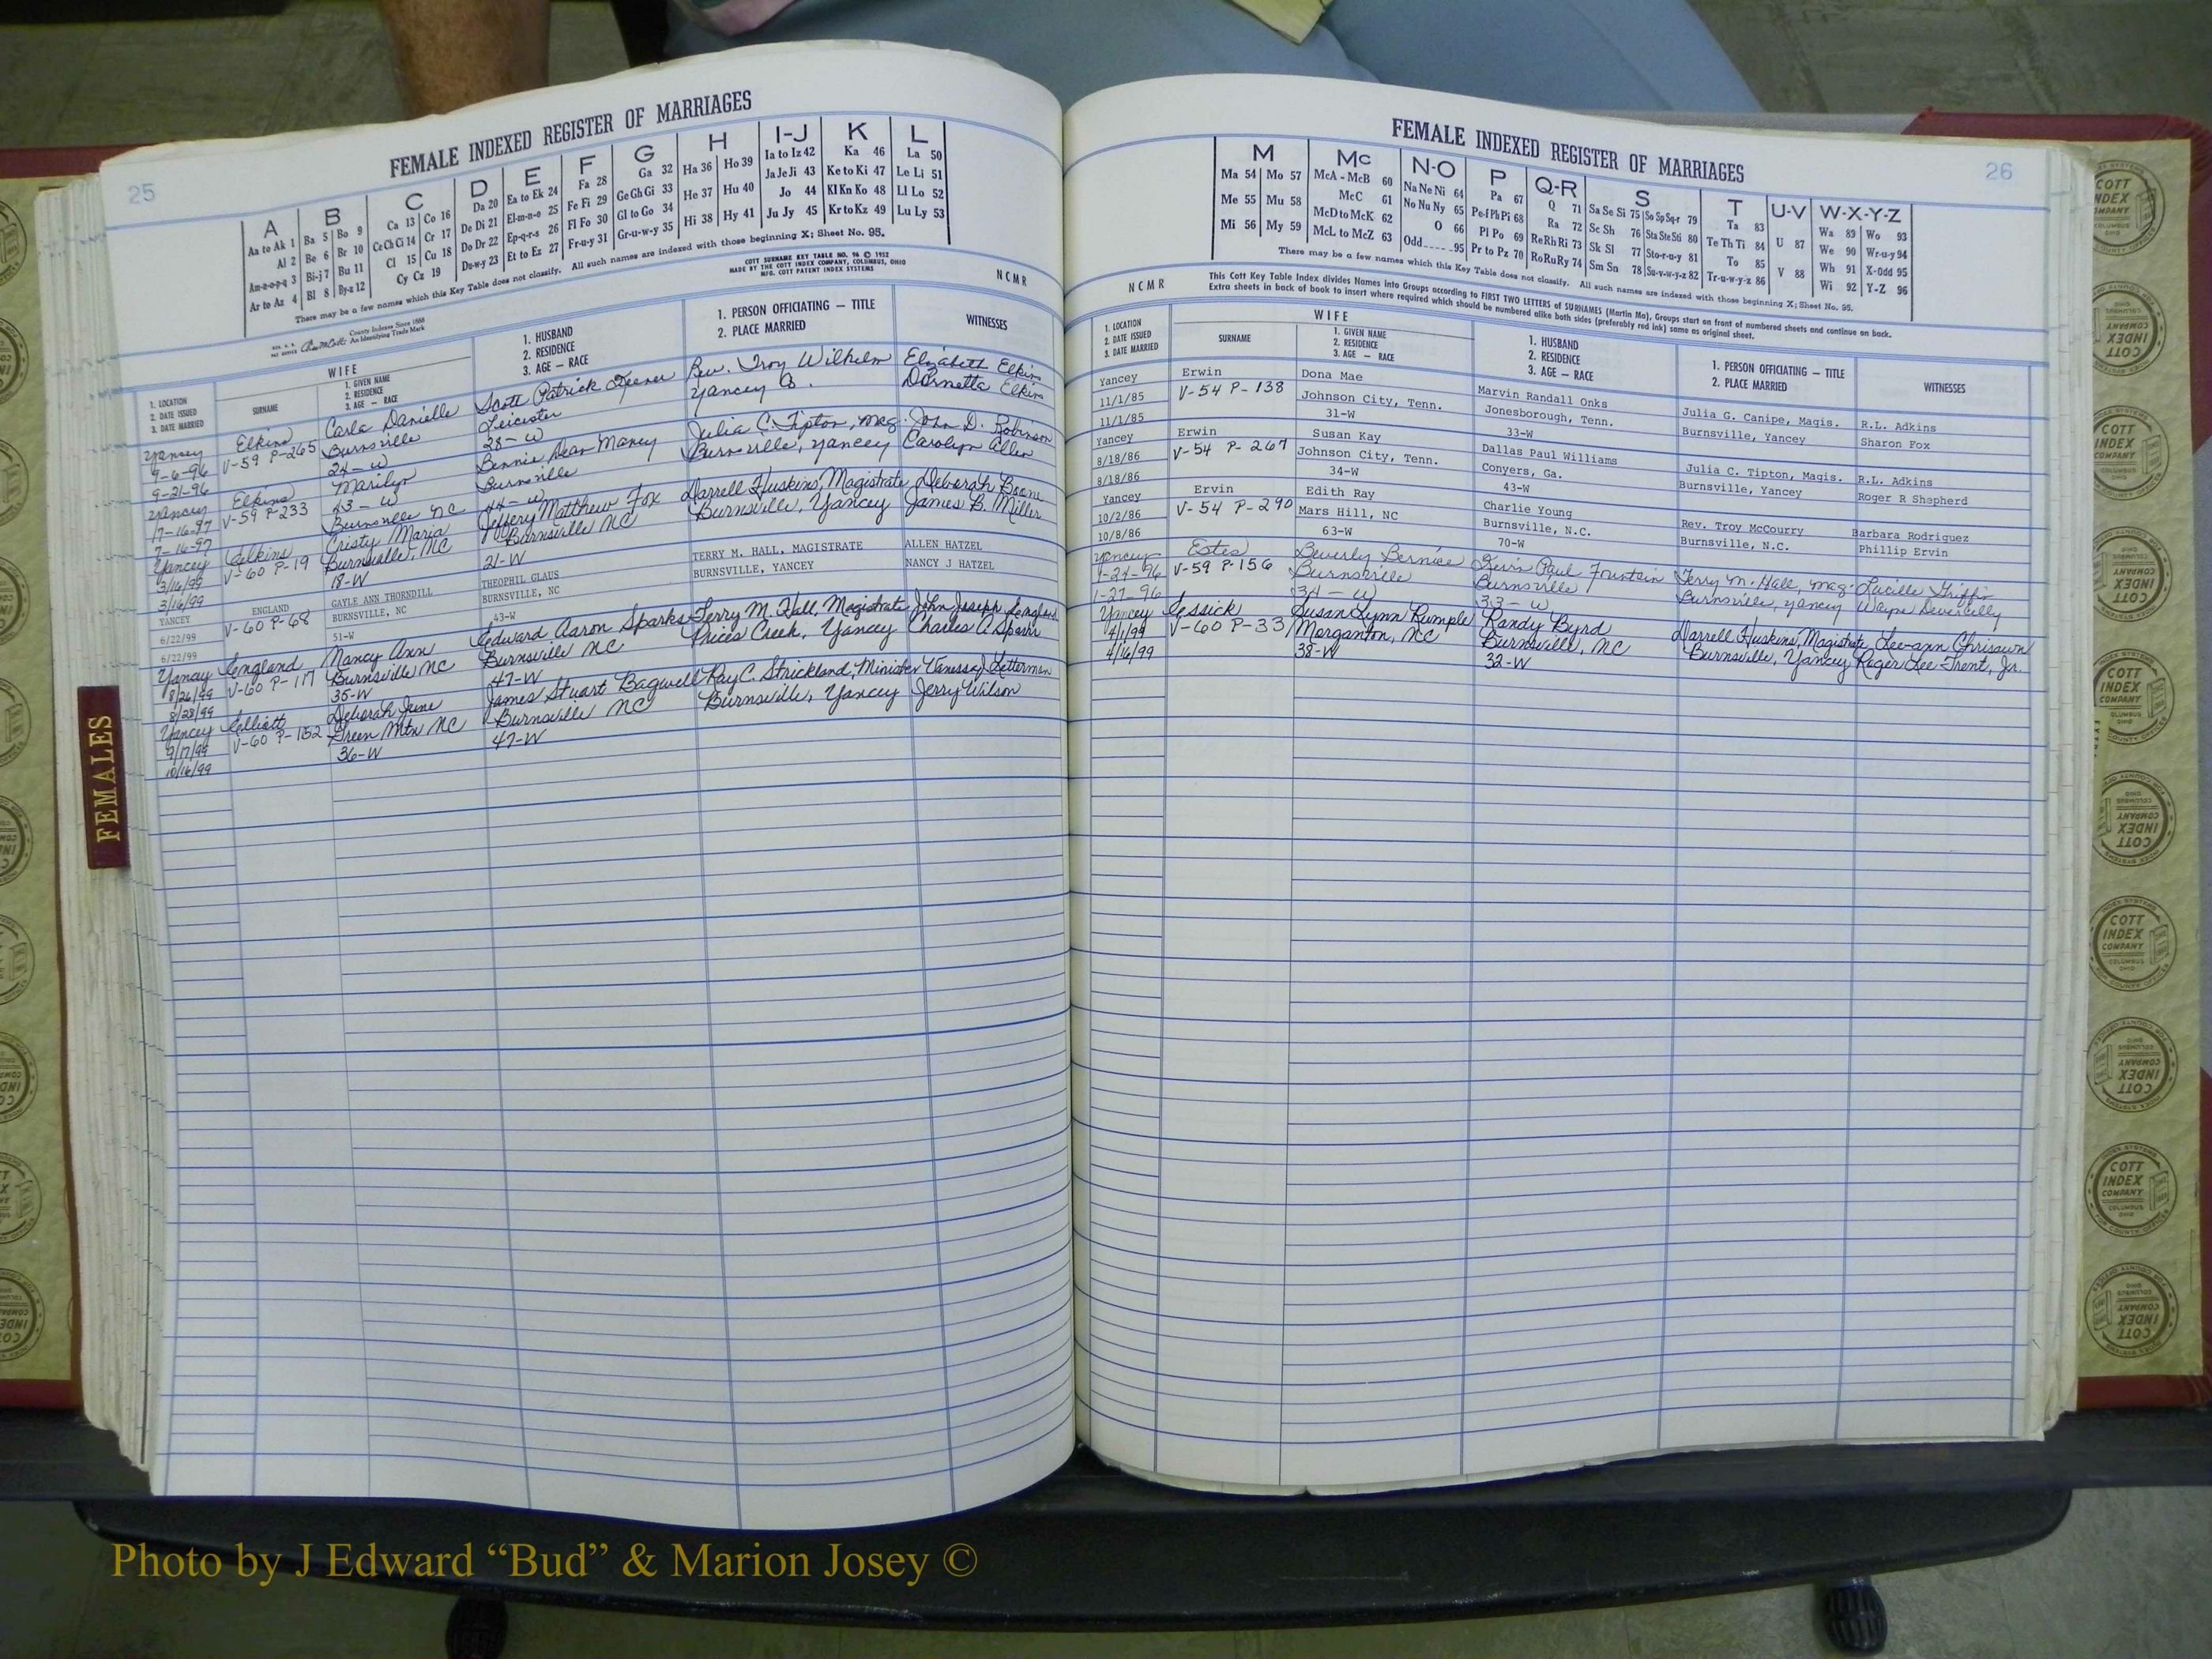 FEMALE INDEXED REGISTER OF MARRIAGES
25
A B C D E F G H I-J K L
Aa to Ak 1 Ba 5 Bo 9 Ca 13 Co 16 Da 20 Ea to Ek 24 Fa 28 Ga 32 Ha 36 Ho 39 Ia to Iz 42 Ka 46 La 50
Al 2 Be 6 Br 10 Ce Ch Ci 14 Cr 17 De Di 21 El-m-n-o 25 Fe Fi 29 Ge Gh Gi 33 He 37 Hu 40 Ja Je Ji 43 Ke to Ki 47 Le Li 51
Am-n-o-p-q 3 Bi-j 7 Bu 11 Cl 15 Cu 18 Do Dr 22 Ep-q-r-s 26 Fl Fo 30 Gl to Go 34 Hi 38 Hy 41 Jo 44 Kl Kn Ko 48 Ll Lo 52
Ar to Az 4 Bl 8 By-z 12 Cy Cz 19 Du-w-y 23 Et to Ez 27 Fr-u-y 31 Gr-u-w-y 35 Ju Jy 45 Kr to Kz 49 Lu Ly 53
There may be a few names which this Key Table does not classify. All such names are indexed with those beginning X; Sheet No. 95.
COTT SURNAME KEY TABLE NO. 96 © 1952
MADE BY THE COTT INDEX COMPANY, COLUMBUS, OHIO
MFG. COTT PATENT INDEX SYSTEMS
NCMR
County Indexes Since 1888
An Identifying Trade Mark
1. LOCATION
2. DATE ISSUED
3. DATE MARRIED
WIFE
SURNAME
1. GIVEN NAME
2. RESIDENCE
3. AGE — RACE
1. HUSBAND
2. RESIDENCE
3. AGE — RACE
1. PERSON OFFICIATING — TITLE
2. PLACE MARRIED
WITNESSES
Yancey Elkins Carla Danielle Scott Patrick Keener Rev. Troy Wilhelm Elizabeth Elkins
9-6-96 V-59 P-265 Burnsville Leicester Yancey Co. Darnetta Elkins
9-21-96 24-W 28-W
Yancey Elkins Marilyn Bennie Dean Maney Julia C. Tipton, Mag. John D. Robinson
7-16-97 V-59 P-233 43-W Burnsville Burnsville, Yancey Carolyn Allen
7-16-97 Burnsville NC 44-W
Yancey Elkins Cristy Maria Jeffery Matthew Fox Darrell Huskins, Magistrate Deborah Boone
3/16/99 V-60 P-19 Burnsville, NC Burnsville NC Burnsville, Yancey James B. Miller
3/16/99 18-W 21-W
YANCEY ENGLAND GAYLE ANN THORNDILL THEOPHIL GLAUS TERRY M. HALL, MAGISTRATE ALLEN HATZEL
6/22/99 V-60 P-68 BURNSVILLE, NC BURNSVILLE, NC BURNSVILLE, YANCEY NANCY J HATZEL
6/22/99 51-W 43-W
Yancey England Nancy Ann Edward Aaron Sparks Terry M. Hall, Magistrate John Joseph
8/26/99 V-60 P-117 Burnsville NC Burnsville NC Prices Creek, Yancey Charles A Sparks
8/28/99 35-W 47-W
Yancey Elliott Deborah June James Stuart Bagwell Ray C. Strickland, Minister Vanessa J Letterman
9/17/99 V-60 P-152 Green Mtn NC Burnsville NC Burnsville, Yancey Jerry Wilson
10/16/99 36-W 47-W
FEMALES
FEMALE INDEXED REGISTER OF MARRIAGES
26
M Mc N-O P Q-R S T U-V W-X-Y-Z
Ma 54 Mo 57 McA - McB 60 Na Ne Ni 64 Pa 67 Q 71 Sa Se Si 75 So Sp Sq-r 79 Ta 83 Wa 89 Wo 93
Me 55 Mu 58 McC 61 No Nu Ny 65 Pe-f Ph Pi 68 Ra 72 Sc Sh 76 Sta Ste Sti 80 Te Th Ti 84 U 87 We 90 Wr-u-y 94
Mi 56 My 59 McD to McK 62 O 66 Pl Po 69 Re Rh Ri 73 Sk Sl 77 Sto-r-u-y 81 To 85 Wh 91 X-Odd 95
McL to McZ 63 Odd 95 Pr to Pz 70 Ro Ru Ry 74 Sm Sn 78 Su-v-w-y-z 82 Tr-u-w-y-z 86 V 88 Wi 92 Y-Z 96
There may be a few names which this Key Table does not classify. All such names are indexed with those beginning X; Sheet No. 95.
NCMR
This Cott Key Table Index divides Names into Groups according to FIRST TWO LETTERS of SURNAMES (Martin Ma). Groups start on front of numbered sheets and continue on back.
Extra sheets in back of book to insert where required which should be numbered alike both sides (preferably red ink) same as original sheet.
1. LOCATION
2. DATE ISSUED
3. DATE MARRIED
WIFE
SURNAME
1. GIVEN NAME
2. RESIDENCE
3. AGE — RACE
1. HUSBAND
2. RESIDENCE
3. AGE — RACE
1. PERSON OFFICIATING — TITLE
2. PLACE MARRIED
WITNESSES
Yancey Erwin Dona Mae Marvin Randall Onks Julia G. Canipe, Magis. R.L. Adkins
11/1/85 V-54 P-138 Johnson City, Tenn. Jonesborough, Tenn. Burnsville, Yancey Sharon Fox
11/1/85 31-W 33-W
Yancey Erwin Susan Kay Dallas Paul Williams Julia C. Tipton, Magis. R.L. Adkins
8/18/86 V-54 P-267 Johnson City, Tenn. Conyers, Ga. Burnsville, Yancey Roger R Shepherd
8/18/86 34-W 43-W
Yancey Ervin Edith Ray Charlie Young Rev. Troy McCourry Barbara Rodriguez
10/2/86 V-54 P-290 Mars Hill, NC Burnsville, N.C. Burnsville, N.C. Phillip Ervin
10/8/86 63-W 70-W
Yancey Estes Beverly Bernice Kevin Paul Fountain Terry M. Hall, Mag. Lucille Griffin
1-24-96 V-59 P-156 Burnsville Burnsville Burnsville, Yancey Wayne
1-27-96 34-W 33-W
Yancey Essick Susan Lynn Rumple Randy Byrd Darrell Huskins, Magistrate Lee-ann Chrisawn
4/1/99 V-60 P-33 Morganton, NC Burnsville, NC Burnsville, Yancey Roger Lee Trent, Jr.
4/16/99 38-W 32-W
COTT
INDEX
COMPANY
COLUMBUS
OHIO
Photo by J Edward “Bud” & Marion Josey ©